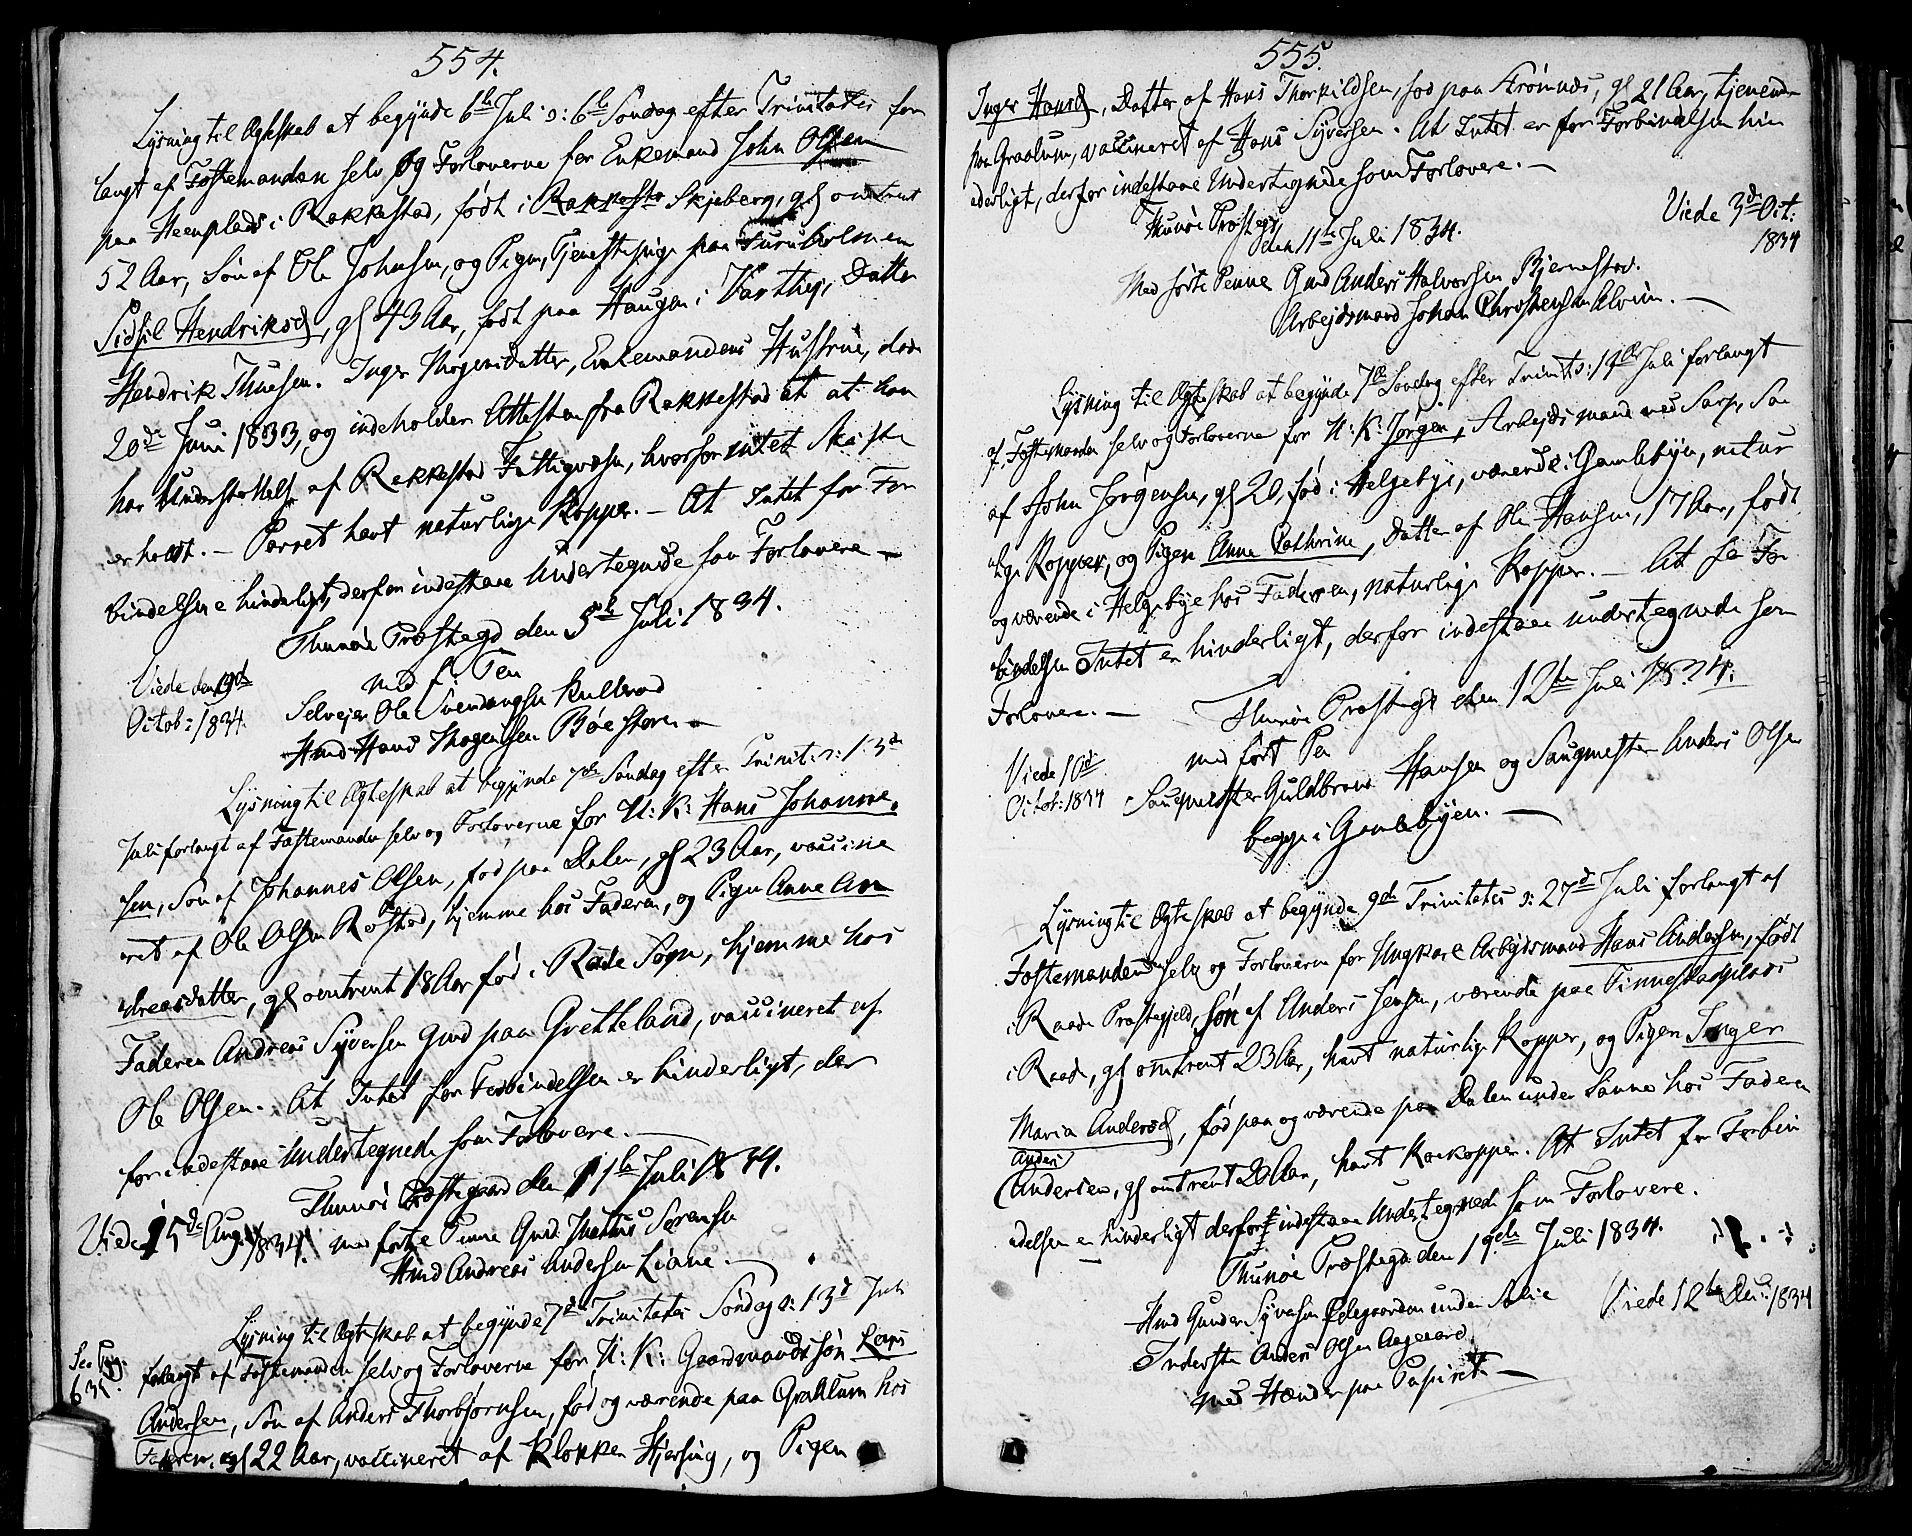 554.
Lysning til Ægteskab at begynde 6te Juli ɔ: 6te Søndag efter Trinitatis for
langt af Fæstemanden selv og Forloverne for Enkemand John Olsen
paa Heenplads i Rakkestad, født i Rakkesta Skjeberg, gl omtrent
52 Aar, Søn af Ole Johnsen, og Pigen, Tjenestepige paa Furuholmen
Sidsil Hendriksd, gl 43 Aar, født paa Haugen i Varteig, Datter
Hendrik Thuesen. Inger Mogensdatter, Enkemandens Hustrue, døde
20de Juni 1833, og indeholder Attesten fra Rakkestad at at han
har Understøttelse af Rakkestad Fattigvæsen, hvorfor intet Skifte
er holdt. – Parret havt naturlige Kopper. – At Intet for For
bindelsen e hinderligt, derfor indestaae Undertegnede som Forlovere –
Thunøe Præstegd den 5te Juli 1834.
Viede den 19de
Octob: 1834.
med f. Pen
Selvejer Ole Svendsen Kullerød
Hmd Hans Mogensen Bøe store –
Lysning til Ægteskab at begynde 7de Søndag efter Trinit: ɔ: 13de
Juli forlangt af Fæstemanden selv og Forloverne for U: K: Hans Johanne
sen, Søn af Johannes Olsen, fød paa Dalen, gl 23 Aar, vaccine
ret af Ole Olsen Røstad, hjemme hos Faderen, og Pigen Anne An
dreasdatter, gl omtrent 18 Aar fød i Raade Sogn, hjemme hos
Faderen Andreas Syversen Gmd paa Gretteland, vaccineret af
Ole Olsen. At Intet for Forbindelsen er hinderligt, der
for indestaae Undertegnede som Forlovere. –
Thunøe Præstegaard den 11te Juli 1834.
Viede 15de Aug. 1834.
medførte Penne Gmd. Sørensen
Hmd Andreas Andersen Liane. –
Lysning til Ægteskab at begynde 7de Trinitatis Søndag ɔ: 13de Juli
See Pag:
635.
forlangt af Fæstemanden selv og Forloverne for U: K: Gaardmandssøn Lars
Andersen, Søn af Anders Thorbjørnsen, fød og værende paa Graalum hos
Faderen, gl 22 Aar, vaccineret af Klokker Hjersing, og Pigen
555.
Inger Hansd, Datter af Hans Thorkildsen, fød paa Strømnes, gl 21 Aar, tjenende
paa Graalum, vaccineret af Hans Syversen. At Intet er for Forbindelsen hin
derligt, derfor indestaae Undertegnede som Forlovere. –
Thunøe Præstegd
den 11te Juli 1834.
Viede 3de Oct:
1834
Med førte Penne Gmd Anders Halvorsen Bjernstad.
Arbejdsmand Johan Christensen Alvim. –
Lysning til Ægteskab at begynde 7de Søndag efter Trinit: ɔ: Juli forlangt
af Fæstemanden selv og Forloverne for U: K: Jørgen, Arbejdsmand ved Sarp, Søn
af John Jørgensen, gl 20, fød i Helgebye, værende i Gamlebyen, natur
lige Kopper, og Pigen Anne Cathrine, Datter af Ole Hansen, 17 Aar, født
og værende i Helgebye hos Faderen, naturlige Kopper. – At for For
bindelsen Intet er hinderligt, derfor indestaae undertegnede som
Forlovere. –
Thunøe Præstegd den 12te Juli 1834.
med ført Pen
Viede 10de
Octob: 1834
Saugmester Guldbrand Hansen og Saugmester Anders Olsen
begge i Gamlebyen. –
Lysning til Ægteskab at begynde 9de Trinitatis ɔ: 27de Juli forlangt af
Fæstemanden selv og Forloverne for Ungkarl Arbejdsmand Hans Andersen, født
i Raade Præstegjeld, Søn af Anders Jensen, værende paa Finnestadplads
i Raade, gl omtrent 23 Aar, havt naturlige Kopper, og Pigen Inger
Maria Andersd, fød paa og værende paa Dalen under Sanne hos Faderen
Anders
Andersen, gl omtrent 20 Aar, havt Koekopper. At Intet for Forbin
delsen er hinderligt derfor indestaae Undertegnede som Forlovere.
Thunøe Præstegd den 19de Juli 1834.
Hmd Gunder Syversen under Solie
Viede 12te Dec: 1834
Inderste Anders Olsen Aagaard
med Hænder paa Papiret –